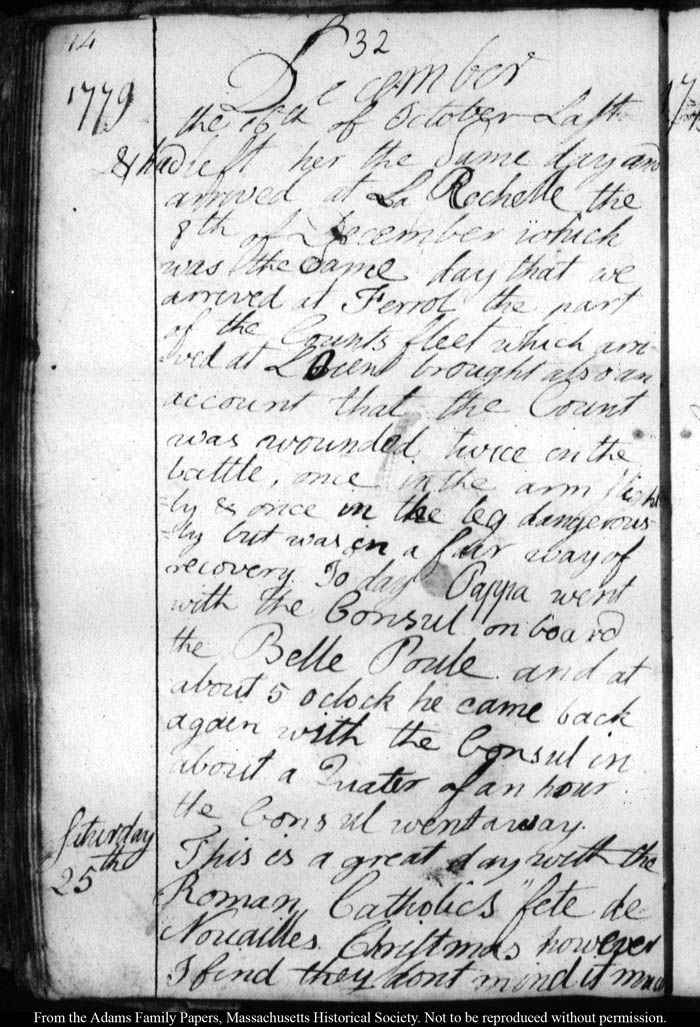 14
32
1779
December
the 16th of October Last
& had left her the Same day and
arrived at La Rochelle the
8th of December which
was the Same day that we
arrived at Ferrol the part
of the Counts fleet which arri-
ved at L'Orient brought also an
account that the Count
was wounded twice in the
battle, once in the arm slight
=ly & once in the leg dangerous=
=ly but was in a fair way of
recovery To day Pappa went
with the Consul on board
the Belle Poule and at
about 5 oclock he came back
again with the Consul in
about a Quater of an hour
the Consul went away.
Saturday
25th
This is a great day with the
Roman Catholics "fete de
Nouailles Christmas however
I find they dont mind it much
17
From the Adams Family Papers, Massachusetts Historical Society. Not to be reproduced without permission.